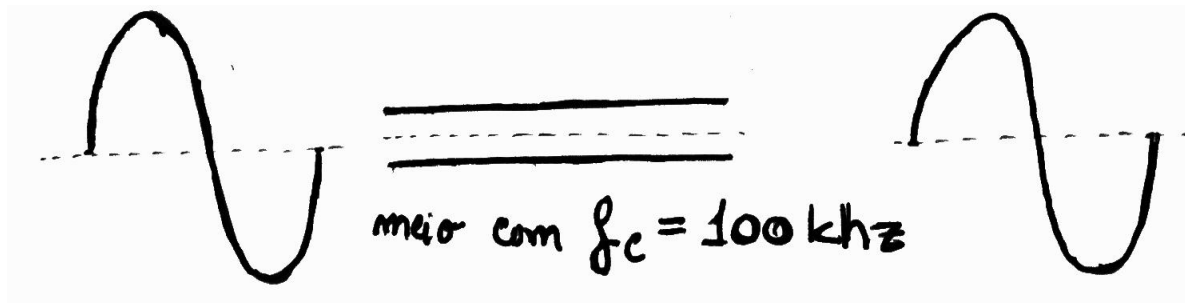 meio com fc = 100 khz